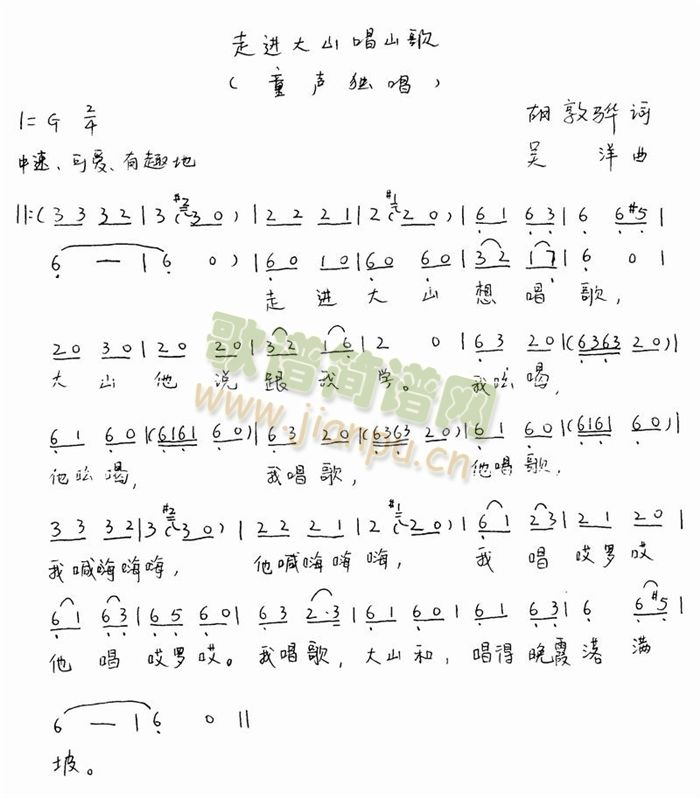 走进大山唱山歌
（童声独唱）
1=G 2/4
胡敦骅 词
中速、可爱、有趣地
吴 洋 曲
||:(3 3 3 2 | 3 (#2 3 0) | 2 2 2 1 | 2 (#1 2 0) | 6 1 6 3 | 6 6 #5 |
6 — | 6 0 ) | 6 0 1 0 | 6 0 6 0 | 3 2 1 7 | 6 0 |
走 进 大 山 想 唱 歌，
2 0 3 0 | 2 0 2 0 | 3 2 1 6 | 2 0 | 6 3 2 0 | (6 3 6 3 2 0) |
大 山 他 说 跟 我 学。 我唱，
6 1 6 0 | (6 1 6 1 6 0) | 6 3 2 0 | (6 3 6 3 2 0) | 6 1 6 0 | (6 1 6 1 6 0) |
他， 我唱歌， 他唱歌，
3 3 3 2 | 3 (#2 3 0) | 2 2 2 1 | 2 (#1 2 0) | 6 1 2 3 | 2 1 2 0 |
我喊嗨嗨嗨， 他喊嗨嗨嗨， 我 唱 哎罗哎
6 1 6 3 | 6 5 6 0 | 6 3 2·3 | 6 1 6 0 | 6 1 6 3 | 6 6 #5 |
他 唱 哎罗哎。 我唱歌， 大山和， 唱得晚霞落 满
6 — | 6 0 ||
坡。
歌谱简谱网
www.jianpu.cn